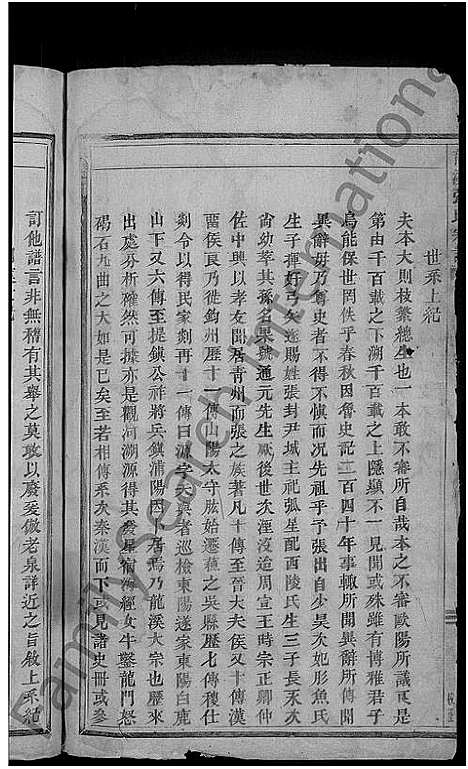 世系上紀
夫本大則枝蕃總生也一本敢不審所自哉本之不審歐陽所議
是
第由千百載之下溯千百載之上隱顯不一見聞或殊雖有博雅君子
烏能保世罔佚乎春秋因魯史記二百四十年事輒所聞異辭所傳聞
異辭毋乃尊史者不得不愼而况先祖乎子張出自少昊次妃彤魚氏
生子揮好弓矢遂賜姓張封尹城主祀弧星配西陵氏生三子長末次
尚幼其孫名果號通元先生厥後世次湮沒迨周宣王時宗正卿仲
佐中興以孝友聞居青州而張之族著凡十傳至晉大夫侯又十傳漢
畱侯良乃徙鈞州歷十一傳山陽太守肱始遷
之吳縣歷七傳稷仕
剡令以得民家剡再十一傳曰源字天與者巡檢東陽遂家東陽白鹿
山下又六傳至提鎭公祥將兵鎭浦陽因卜居焉乃龍溪大宗也歷來
出處分析確然可據亦是觀河溯源得其
星宿
經女牛鑿龍門怒
碣石九曲之大如是已矣至若相傳系次秦漢而下或見諸史冊或參
訂他譜言非無稽有其舉之莫敢以廢爰倣老泉詳近之旨敘上系紀